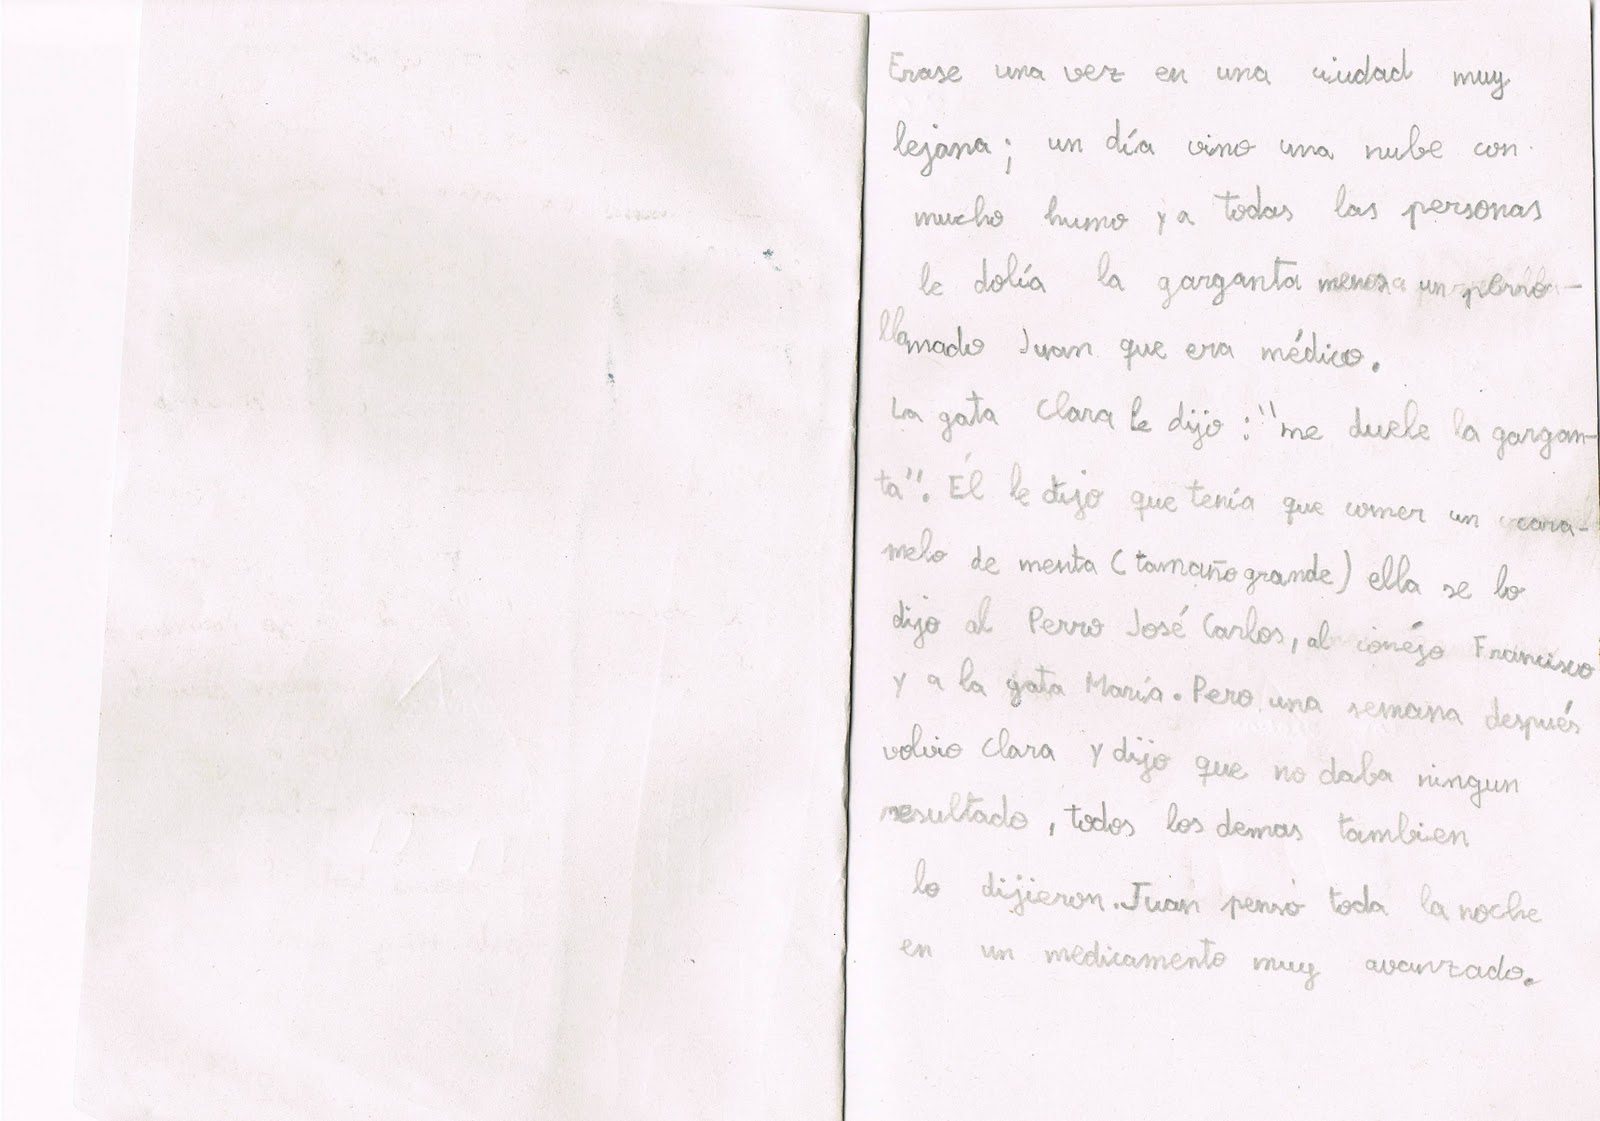 Erase una vez en una ciudad muy
lejana; un día vino una nube con
mucho humo y a todas las personas
le dolía la garganta menos a un perro
llamado Juan que era médico.
La gata Clara le dijo: "me duele la gargan-
ta". Él le dijo que tenía que comer un cara-
melo de menta (tamaño grande) ella se lo
dijo al Perro José Carlos, al conéjo Francisco
y a la gata María. Pero una semana después
volvio Clara y dijo que no daba ningun
resultado, todos los demas tambien
lo dijieron. Juan penso toda la noche
en un medicamento muy avanzado.